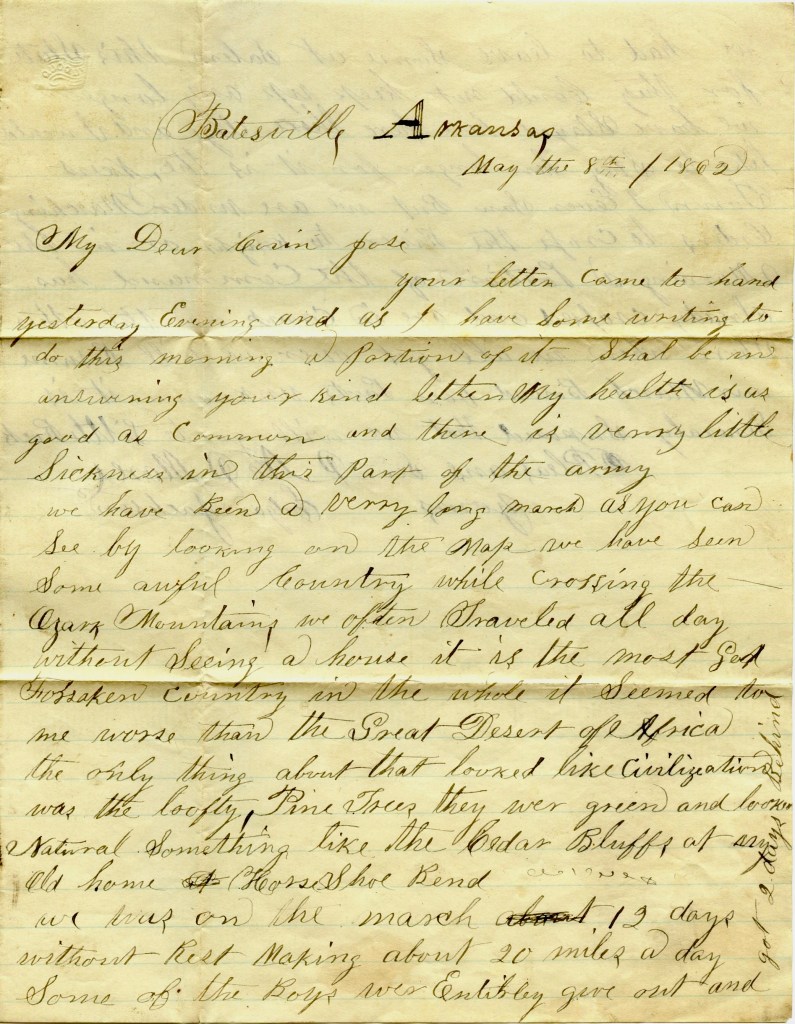 Batesville, Arkansas,
May the 8th / 1862
My Dear Cosin pose
your letter came to hand
yesterday Evening and as I have Some writing to
do this morning a Portion of it Shal be in
answering your kind letter My health is as
good as Common and there is verry little
Sickness in this Part of the army
we have Been a verry long march as you can
See by looking on the Map we have Seen
Some awful Country while Crossing the
Ozark Mountains, we often Traveled all day
without Seeing a house it is the most God
Forsaken Country in the whole it Seemed to
me worse than the Great Desert of Africa
the only thing about that looked like Civilization
was the loofty, Pine Trees they wer green and looked
Natural Something like the Cedar Bluffs, at my
Old home Horse Shoe Bend
we was on the march about 12 days
without Rest Making about 20 miles a day
Some of the Boys wer Entirley give out and
got 2 days Behind